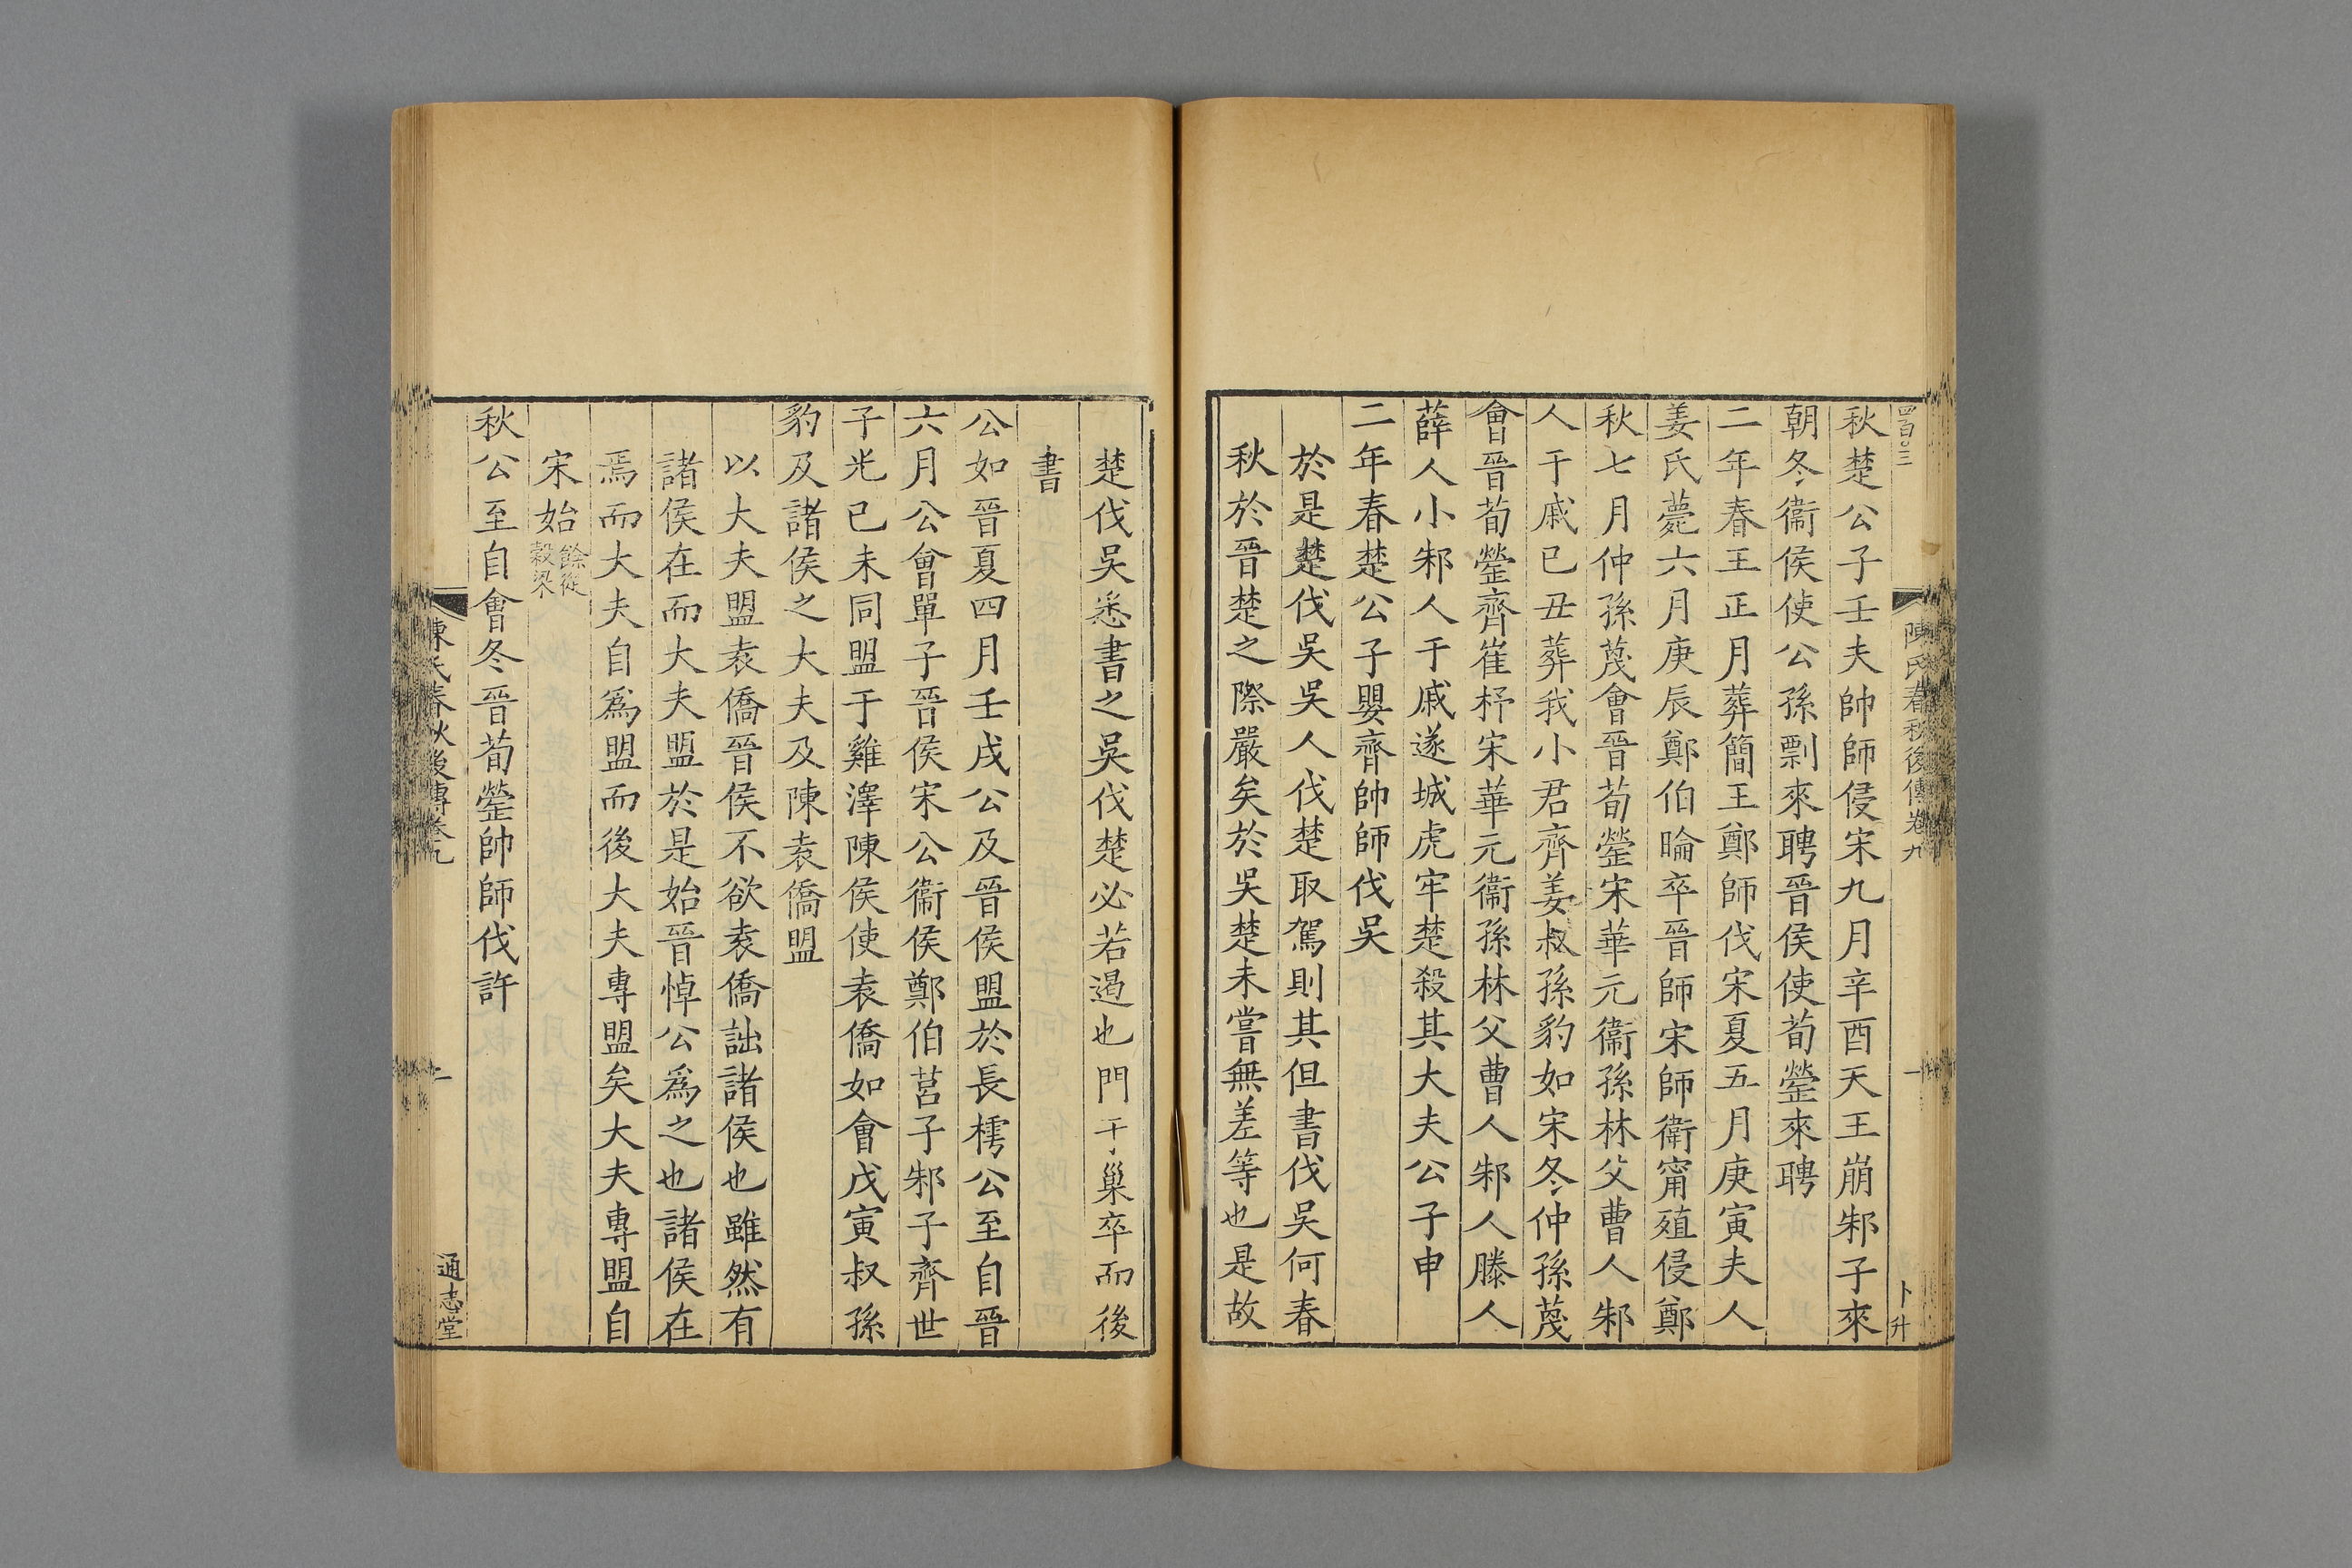 四百〇三
陳氏春秋後傳卷九
一
卜升
秋楚公子壬夫帥師侵宋九月辛酉天王崩邾子來
朝冬衞侯使公孫剽來聘晉侯使荀罃來聘
二年春王正月葬簡王鄭師伐宋夏五月庚寅夫人
姜氏薨六月庚辰鄭伯睔卒晉師宋師衞甯殖侵鄭
秋七月仲孫蔑會晉荀罃宋華元衞孫林父曹人邾
人于戚已丑葬我小君齊姜叔孫豹如宋冬仲孫蔑
會晉荀罃齊崔杼宋華元衞孫林父曹人邾人滕人
薛人小邾人于戚遂城虎牢楚殺其大夫公子申
二年春楚公子嬰齊帥師伐吳
於是楚伐吳吳人伐楚取駕則其但書伐吳何春
秋於晉楚之際嚴矣於吳楚未嘗無差等也是故
楚伐吳悉書之吳伐楚必若遏也門于巢卒而後
書
公如晉夏四月壬戌公及晉侯盟於長樗公至自晉
六月公會單子晉侯宋公衞侯鄭伯莒子邾子齊世
子光已未同盟于雞澤陳侯使袁僑如會戊寅叔孫
豹及諸侯之大夫及陳袁僑盟
以大夫盟袁僑晉侯不欲袁僑詘諸侯也雖然有
諸侯在而大夫盟於是始晉悼公爲之也諸侯在
焉而大夫自爲盟而後大夫專盟矣大夫專盟自
宋始餘從
穀梁
秋公至自會冬晉荀罃帥師伐許
陳氏春秋後傳卷九
二
通志堂